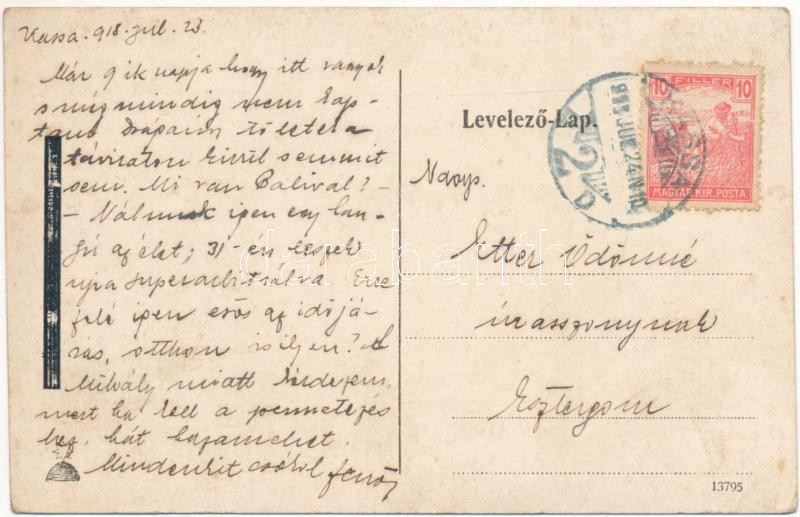 Kassa. 918. jul. 23.
Már 9 ik napja hogy itt vagyok
s még mindig nem kap-
tam Drápám tőletek a
táviraton kívül semmit
sem. Mi van Palival? -
- Nálunk igen egy han-
gú az élet; 31-én leszek
ujra superarbitrálva Erre
felé igen erős az időjá-
rás, otthon is ilyen? A
Mihály miatt kérdezem,
mert ha kell a permetezés
hez, hát hazamehet.
Mindenkit csókol Jenő
Levelező-Lap.
FILLÉR
10 10
MAGYAR KIR. POSTA
KASSA
Nagys.
Etter Ödönné
úrasszonynak
Esztergom
13795
darabanth